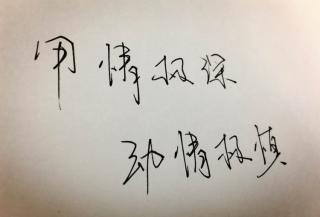 用情极深
动情极慎